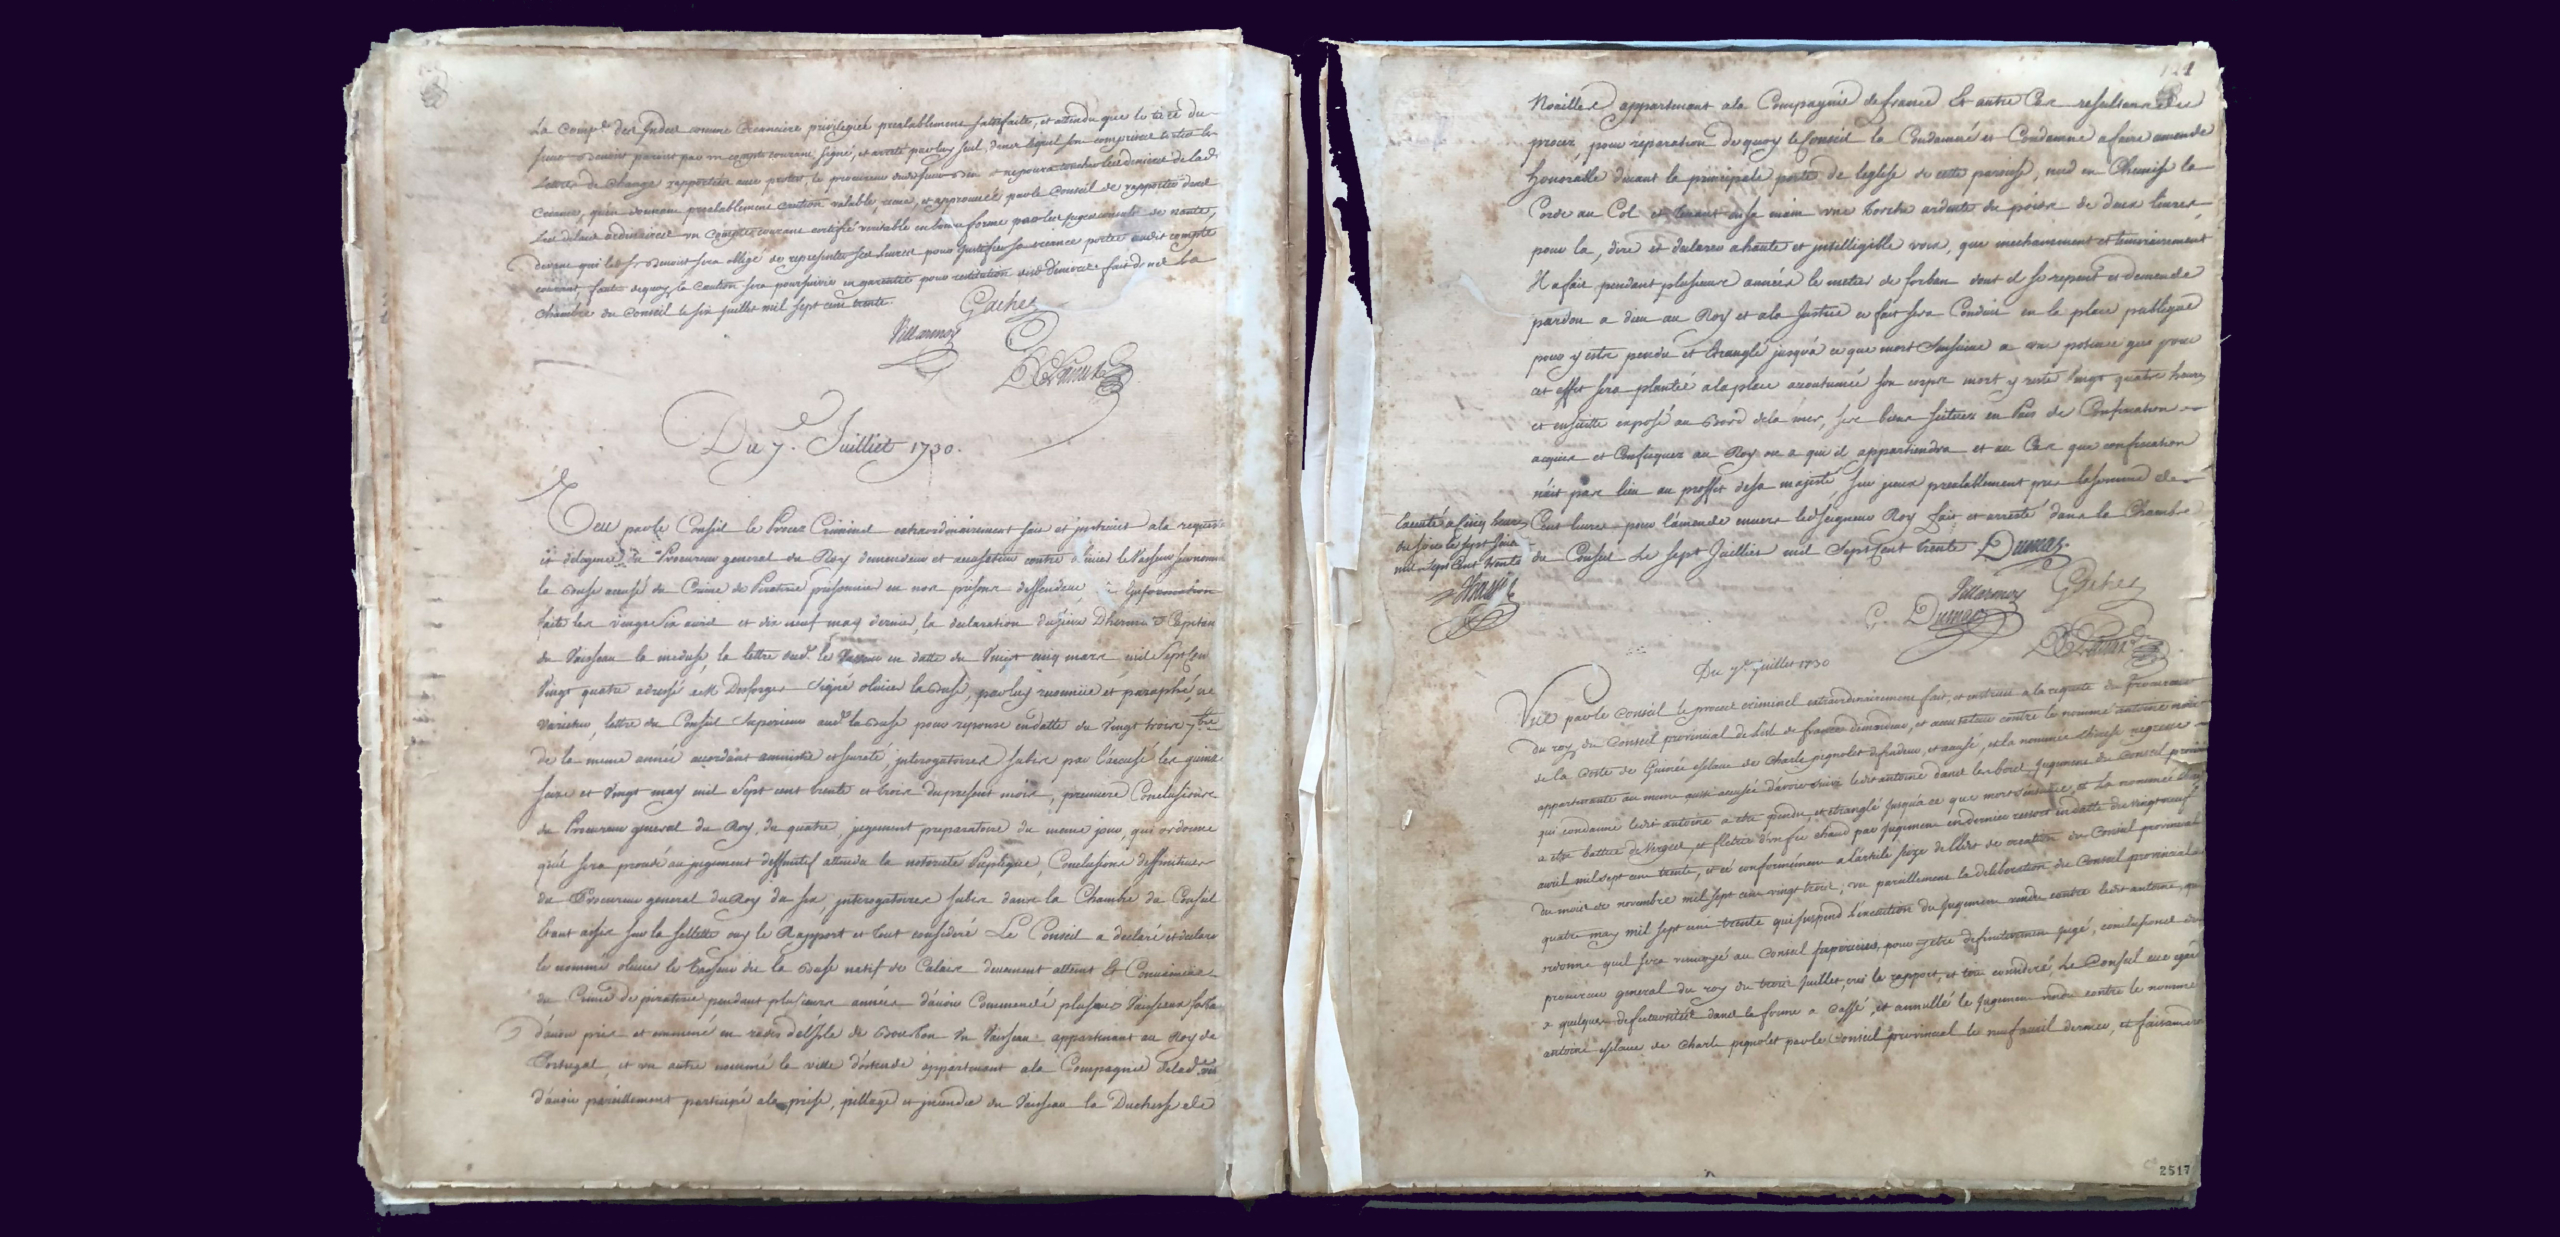 La Comp.e des Indes comme Creanciere privilegiée prealablement satisfaite, et attendu que le titre du
sieur Benoist paroist par un compte courant signé, et arreté par luy seul, dans lequel sont comprises toutes les
Lettres de Change rapportées avec protest, le procureur dud. sieur ne poura toucher les deniers de lad.
Creance, qu'en donnant prealablement caution valable, reçue, et approuvée par le Conseil de rapporter dans
les delais ordinaires un Compte courant certifié veritable en bonne forme par les juges consuls de nante,
devant qui led. s. Benoist sera obligé de representer ses livres pour justifier sa creance portée audit compte
courant, faute de quoy la Caution sera poursuivie en garantie pour restitution desd. deniers. fait donné la
chambre du Conseil le six juillet mil sept cent trente.
Gachet
Villarmoy
Du 7.e Juilliet 1730.
Veu par le Conseil le Procez Criminel extraordinairement fait et instruit a la reques
te et diligence du Procureur general du Roy demendeur et accusateur contre Olivier le Vasseur surnommé
la Buse accusé du Crime de Piraterie prisonnier en nos prisons deffendeur, Information
faite les vingt six avril et dix neuf may dernier, la declaration du sieur Dhermitte Capitaine
du Vaisseau la meduse, la lettre dud. le Vasseur en datte du Vingt cinq mars mil Sept Cent
Vingt quatre adressé a M. Desforges Signé olivier la Buse, par luy reconnue et paraphé ne
varietur, lettre du Conseil Superieur aud. la Buse pour reponse en datte du Vingt trois 7.bre
de la meme année accordant amnistie et sureté, jnterogatoires subis par l'accusé les quinze
Seize et Vingt may mil Sept cent trente et trois du present mois, premiere Conclusions
du Procureur general du Roy, du quatre, jugement preparatoire du meme jour, qui ordonne
qu'il sera procédé au jugement deffinitif attendu la notorieté Publique, Conclusions deffinitives
du Procureur general du Roy du six, jnterogatoires subis dans la Chambre du Conseil
Etant assis sur la sellette ouy le Rapport et tout consideré Le Conseil a declaré et declare
le nommé olivier le Vasseur dit la Buse natif de Calais deuement atteint Et Convaincu
du Crime de piraterie pendant plusieurs années d'avoir Commendé plusieurs Vaisseaux forbans
d'avoir pris et emmené en rades de l'Isle de Bourbon Un Vaisseau appartenant au Roy de
Portugal, et un autre nommé la ville d'ostende appartenant a la Compagnie de lad. ville
d'avoir pareillement participé a la prise, pillage et jncendie du Vaisseau la Duchesse de
Noailles appartenant a la Compagnie de france Et autre Cas resultans des
procez, pour reparation de quoy le Conseil la Condamné et Condamne a faire amende
honorable devant la principale porte de leglise de cette paroisse, nud en Chemise la
Corde au Col et tenant en sa main une torche ardente du poids de deux livres
pour la, dire et declarer a haute et jntelligible voix, que mechamment et temerairement
Il a fait pendant plusieurs années le metier de forban dont il se repent et demende
pardon a dieu au Roy et a la Justice ce fait sera Conduit en la place publique
pour y estre pendu et Etranglé jusqu'a ce que mort Sensuive a une potence qui pour
cet effet sera plantée a la place accoutumée son corps mort y resté Vingt quatre heures
et ensuitte exposé au Bord de la mer, ses biens scituez en Pais de Confiscation
acquis et Confisquez au Roy ou a qui il appartiendra et au Cas que confiscation
n'ait pas lieu au proffit de sa majesté sur jceux prealablement pris la somme de
Cent livres pour l'amende envers led. Seigneur Roy fait et arresté dans la Chambre
du Conseil Le sept Juilliet mil Sept Cent trente. Dumas.
Executé a Cinq heures
du soir le sept Juilet
mil Sept Cent trente
Villarmoy
Gachet
C. Dumas
Du 7.e Juillet 1730
Vue par le Conseil le procez criminel extraordinairement fait, et instruit a la requete du Procureur
du roy du Conseil provincial de l'isle de france demandeur, et accusateur contre le nomme antoine noir
de la coste de Guinée esclave de Charle pignolet defendeur et accusé, et la nommée negresse
appartenante au meme aussi accusée d'avoir suivi ledit antoine dans les bois, jugement du Conseil provin
qui condamne ledit antoine a etre pendu, et etranglé jusqu'a ce que mort s'ensuive, et La nommée
a etre battue de Verges, et fletrie d'un fer chaud par jugement en dernier ressort en datte du vingt neuf
avril mil sept cent trente, et ce conformément a l'article seize de l'Edit de creation du Conseil provincial
du mois de novembre mil sept cent vingt trois; vu pareillement la deliberation du Conseil provincial
quatre may mil sept cent trente qui suspend l'execution du jugement rendu contre ledit antoine, qui
ordonne quil sera renvoyé au Conseil superieur, pour y etre definitivement jugé, conclusions du
procureur general du roy du trois juillet, oui le rapport, et tout consideré, Le Conseil
quelques dans la forme a cassé, et annullé le jugement rendu contre le nommé
antoine esclave de Charle pignolet par le Conseil provincial le neuf avril dernier, et faisant
2517